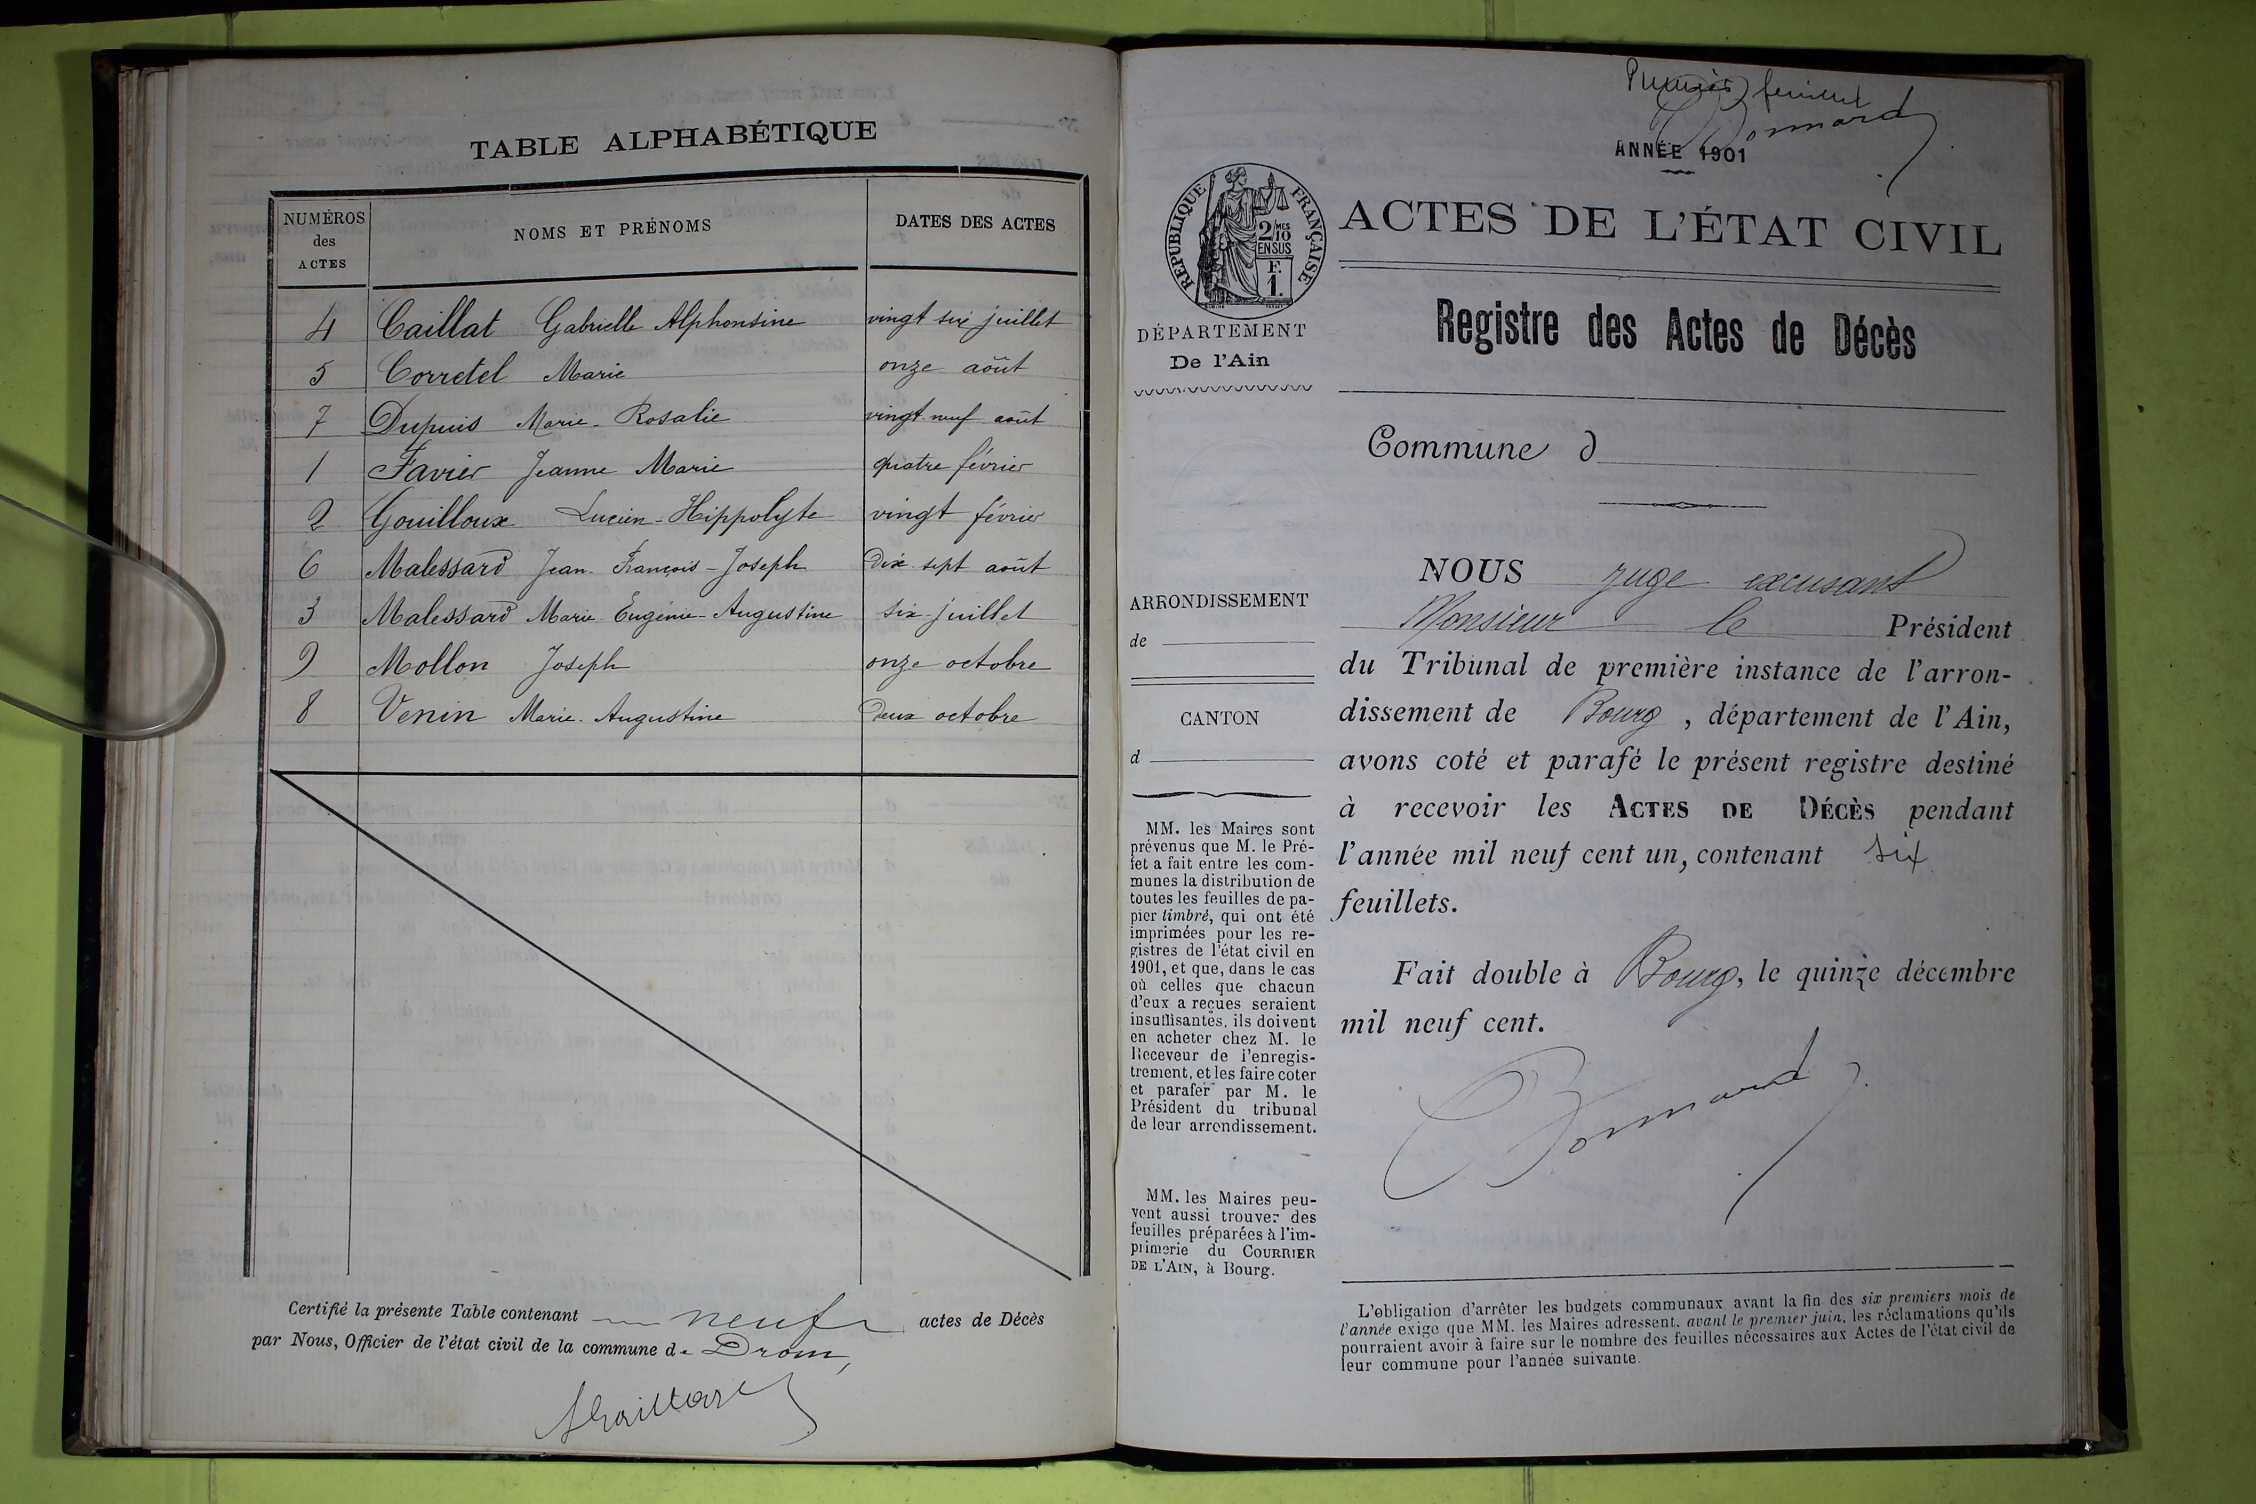 TABLE ALPHABÉTIQUE
NUMÉROS des ACTES NOMS ET PRÉNOMS DATES DES ACTES
4 Caillat Gabrielle Alphonsine vingt six juillet
5 Corretel Marie onze août
7 Dupuis Marie-Rosalie vingt neuf août
1 Favier Jeanne Marie quatre février
2 Gouilloux Lucien-Hippolyte vingt février
6 Malessard Jean-François-Joseph dix sept août
3 Malessard Marie-Eugénie-Augustine six juillet
9 Mollon Joseph onze octobre
8 Venin Marie-Augustine deux octobre
Certifié la présente Table contenant neuf actes de Décès
par Nous, Officier de l'état civil de la commune de Drom,
Premier feuillet
Bonnard
ANNÉE 1901
RÉPUBLIQUE FRANÇAISE
2/10 MES
EN SUS
F.
1.
ACTES DE L'ÉTAT CIVIL
DÉPARTEMENT
De l'Ain
Registre des Actes de Décès
Commune d
ARRONDISSEMENT
de
CANTON
d
MM. les Maires sont
prévenus que M. le Pré-
fet a fait entre les com-
munes la distribution de
toutes les feuilles de pa-
pier timbré, qui ont été
imprimées pour les re-
gistres de l'état civil en
1901, et que, dans le cas
où celles que chacun
d'eux a reçues seraient
insuffisantes, ils doivent
en acheter chez M. le
Receveur de l'enregis-
trement, et les faire coter
et parafer par M. le
Président du tribunal
de leur arrondissement.
MM. les Maires peu-
vent aussi trouver des
feuilles préparées à l'im-
primerie du COURRIER
DE L'AIN, à Bourg.
NOUS juge excusant
Monsieur le Président
du Tribunal de première instance de l'arron-
dissement de Bourg, département de l'Ain,
avons coté et parafé le présent registre destiné
à recevoir les ACTES DE DÉCÈS pendant
l'année mil neuf cent un, contenant six
feuillets.
Fait double à Bourg, le quinze décembre
mil neuf cent.
Bonnard
L'obligation d'arrêter les budgets communaux avant la fin des six premiers mois de
l'année exige que MM. les Maires adressent, avant le premier juin, les réclamations qu'ils
pourraient avoir à faire sur le nombre des feuilles nécessaires aux Actes de l'état civil de
leur commune pour l'année suivante.